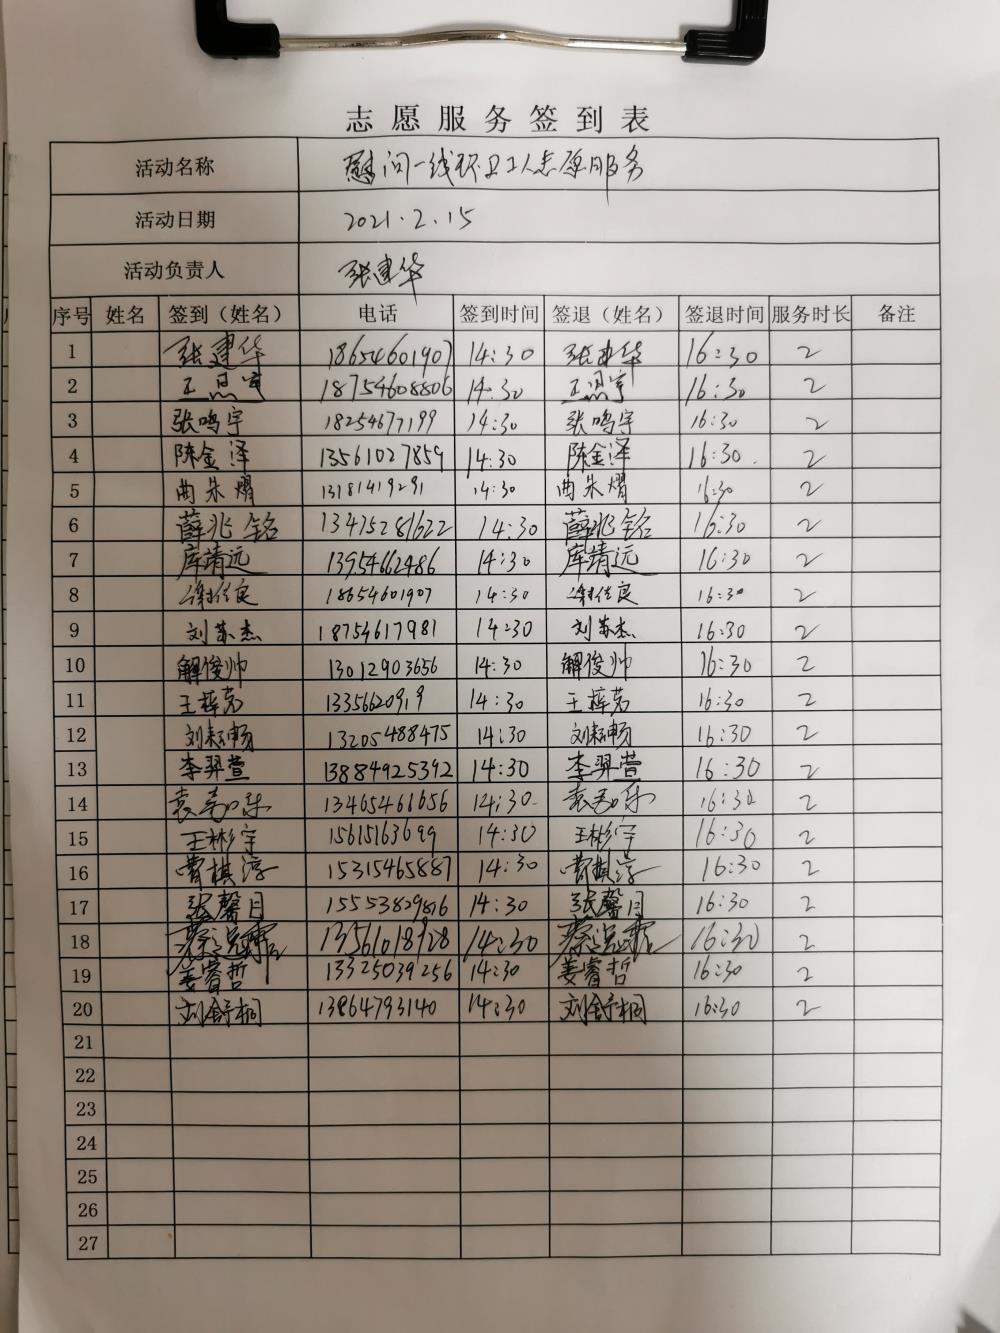 志愿服务签到表
活动名称 慰问一线环卫工人志愿服务
活动日期 2021.2.15
活动负责人 张建华
序号 姓名 签到（姓名） 电话 签到时间 签退（姓名） 签退时间 服务时长 备注
1 张建华 18654601907 14:30 张建华 16:30 2
2 王思宇 18754608806 14:30 王思宇 16:30 2
3 张鸣宇 18254677199 14:30 张鸣宇 16:30 2
4 陈金泽 13561027859 14:30 陈金泽 16:30 2
5 曲朱熠 13181419291 14:30 曲朱熠 16:30 2
6 薛兆铭 13475281622 14:30 薛兆铭 16:30 2
7 库靖远 13954662486 14:30 库靖远 16:30 2
8 谢佳良 18654601907 14:30 谢佳良 16:30 2
9 刘苏杰 18754617981 14:30 刘苏杰 16:30 2
10 解俊帅 13012903656 14:30 解俊帅 16:30 2
11 王梓茗 1335620919 14:30 王梓茗 16:30 2
12 刘耘畅 13205488475 14:30 刘耘畅 16:30 2
13 李羿萱 13884925392 14:30 李羿萱 16:30 2
14 13465461656 14:30 16:30 2
15 王彬宇 15615163699 14:30 王彬宇 16:30 2
16 曹棋淳 15315465887 14:30 曹棋淳 16:30 2
17 张馨月 15553839816 14:30 张馨月 16:30 2
18 13561018928 14:30 16:30 2
19 姜睿哲 13325039256 14:30 姜睿哲 16:30 2
20 刘舒桐 13864793140 14:30 刘舒桐 16:30 2
21
22
23
24
25
26
27